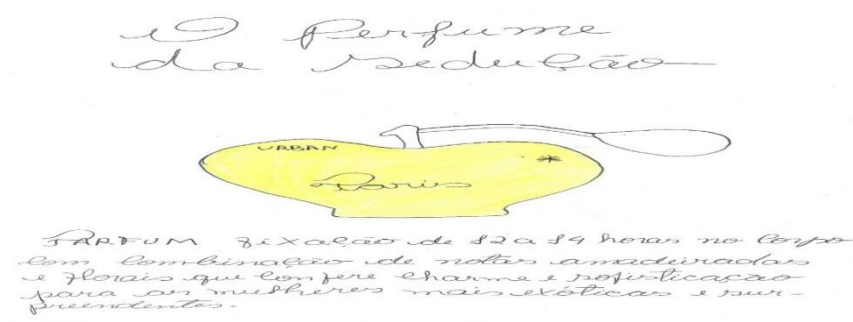 O Perfume
da Sedução
URBAN
Paris
PARFUM Fixação de 12 a 14 horas no corpo
com combinação de notas amadeiradas
e florais que confere charme e sofisticação
para as mulheres mais exóticas e sur-
preendentes.